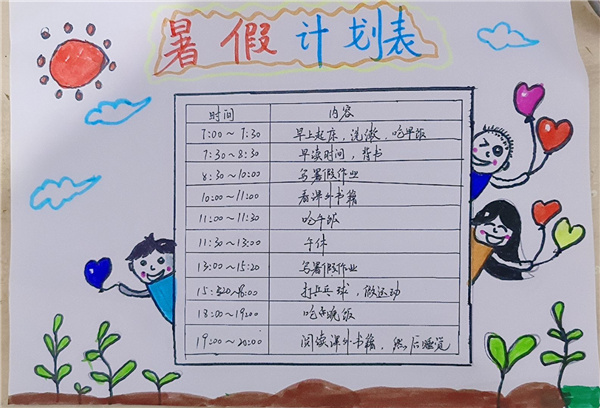 暑假计划表
时间 内容
7:00~7:30 早上起床,洗漱,吃早饭
7:30~8:30 早读时间,背书
8:30~10:00 写暑假作业
10:00~11:00 看课外书籍
11:00~11:30 吃午饭
11:30~13:00 午休
13:00~15:20 写暑假作业
15:20~18:00 打乒乓球,做运动
18:00~19:00 吃晚饭
19:00~20:00 阅读课外书籍,然后睡觉